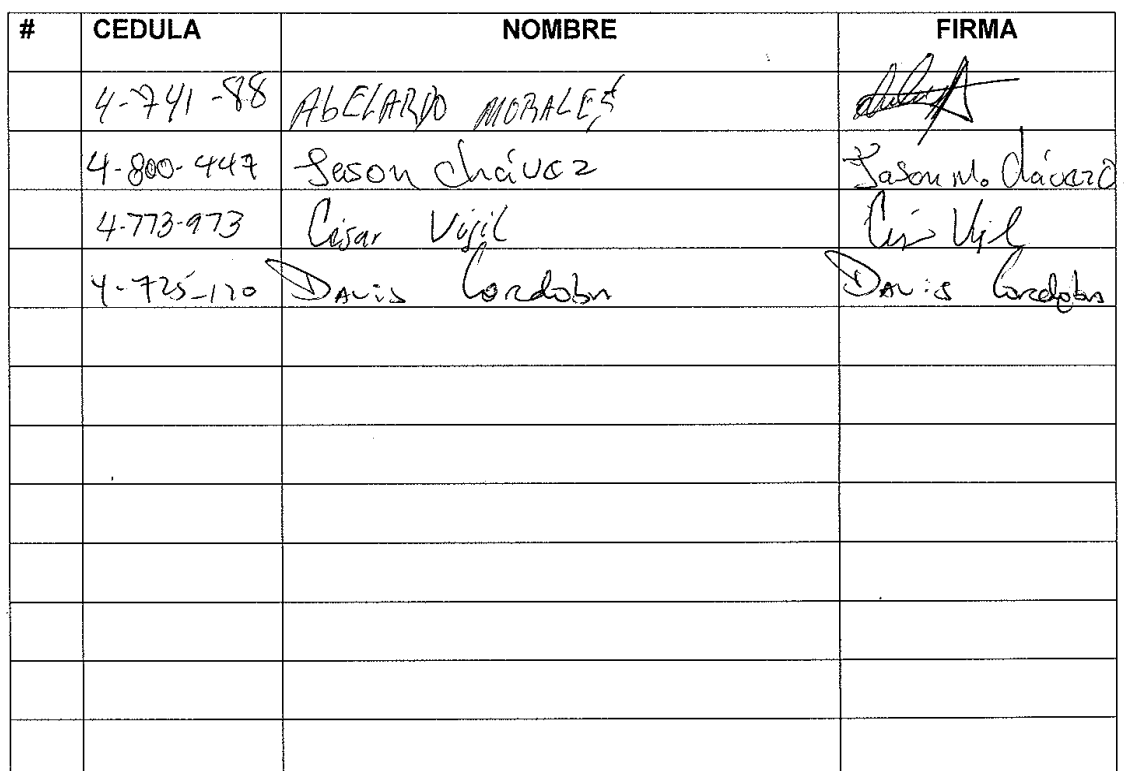 # CEDULA NOMBRE FIRMA
4-741-88 AbELARDO MORALES
4-800-447 Jeson Chávez Jason M. Chávez C
4-773-973 César Vijil César Vijil
4-725-120 DAvis Cordoba DAvis Cordoba